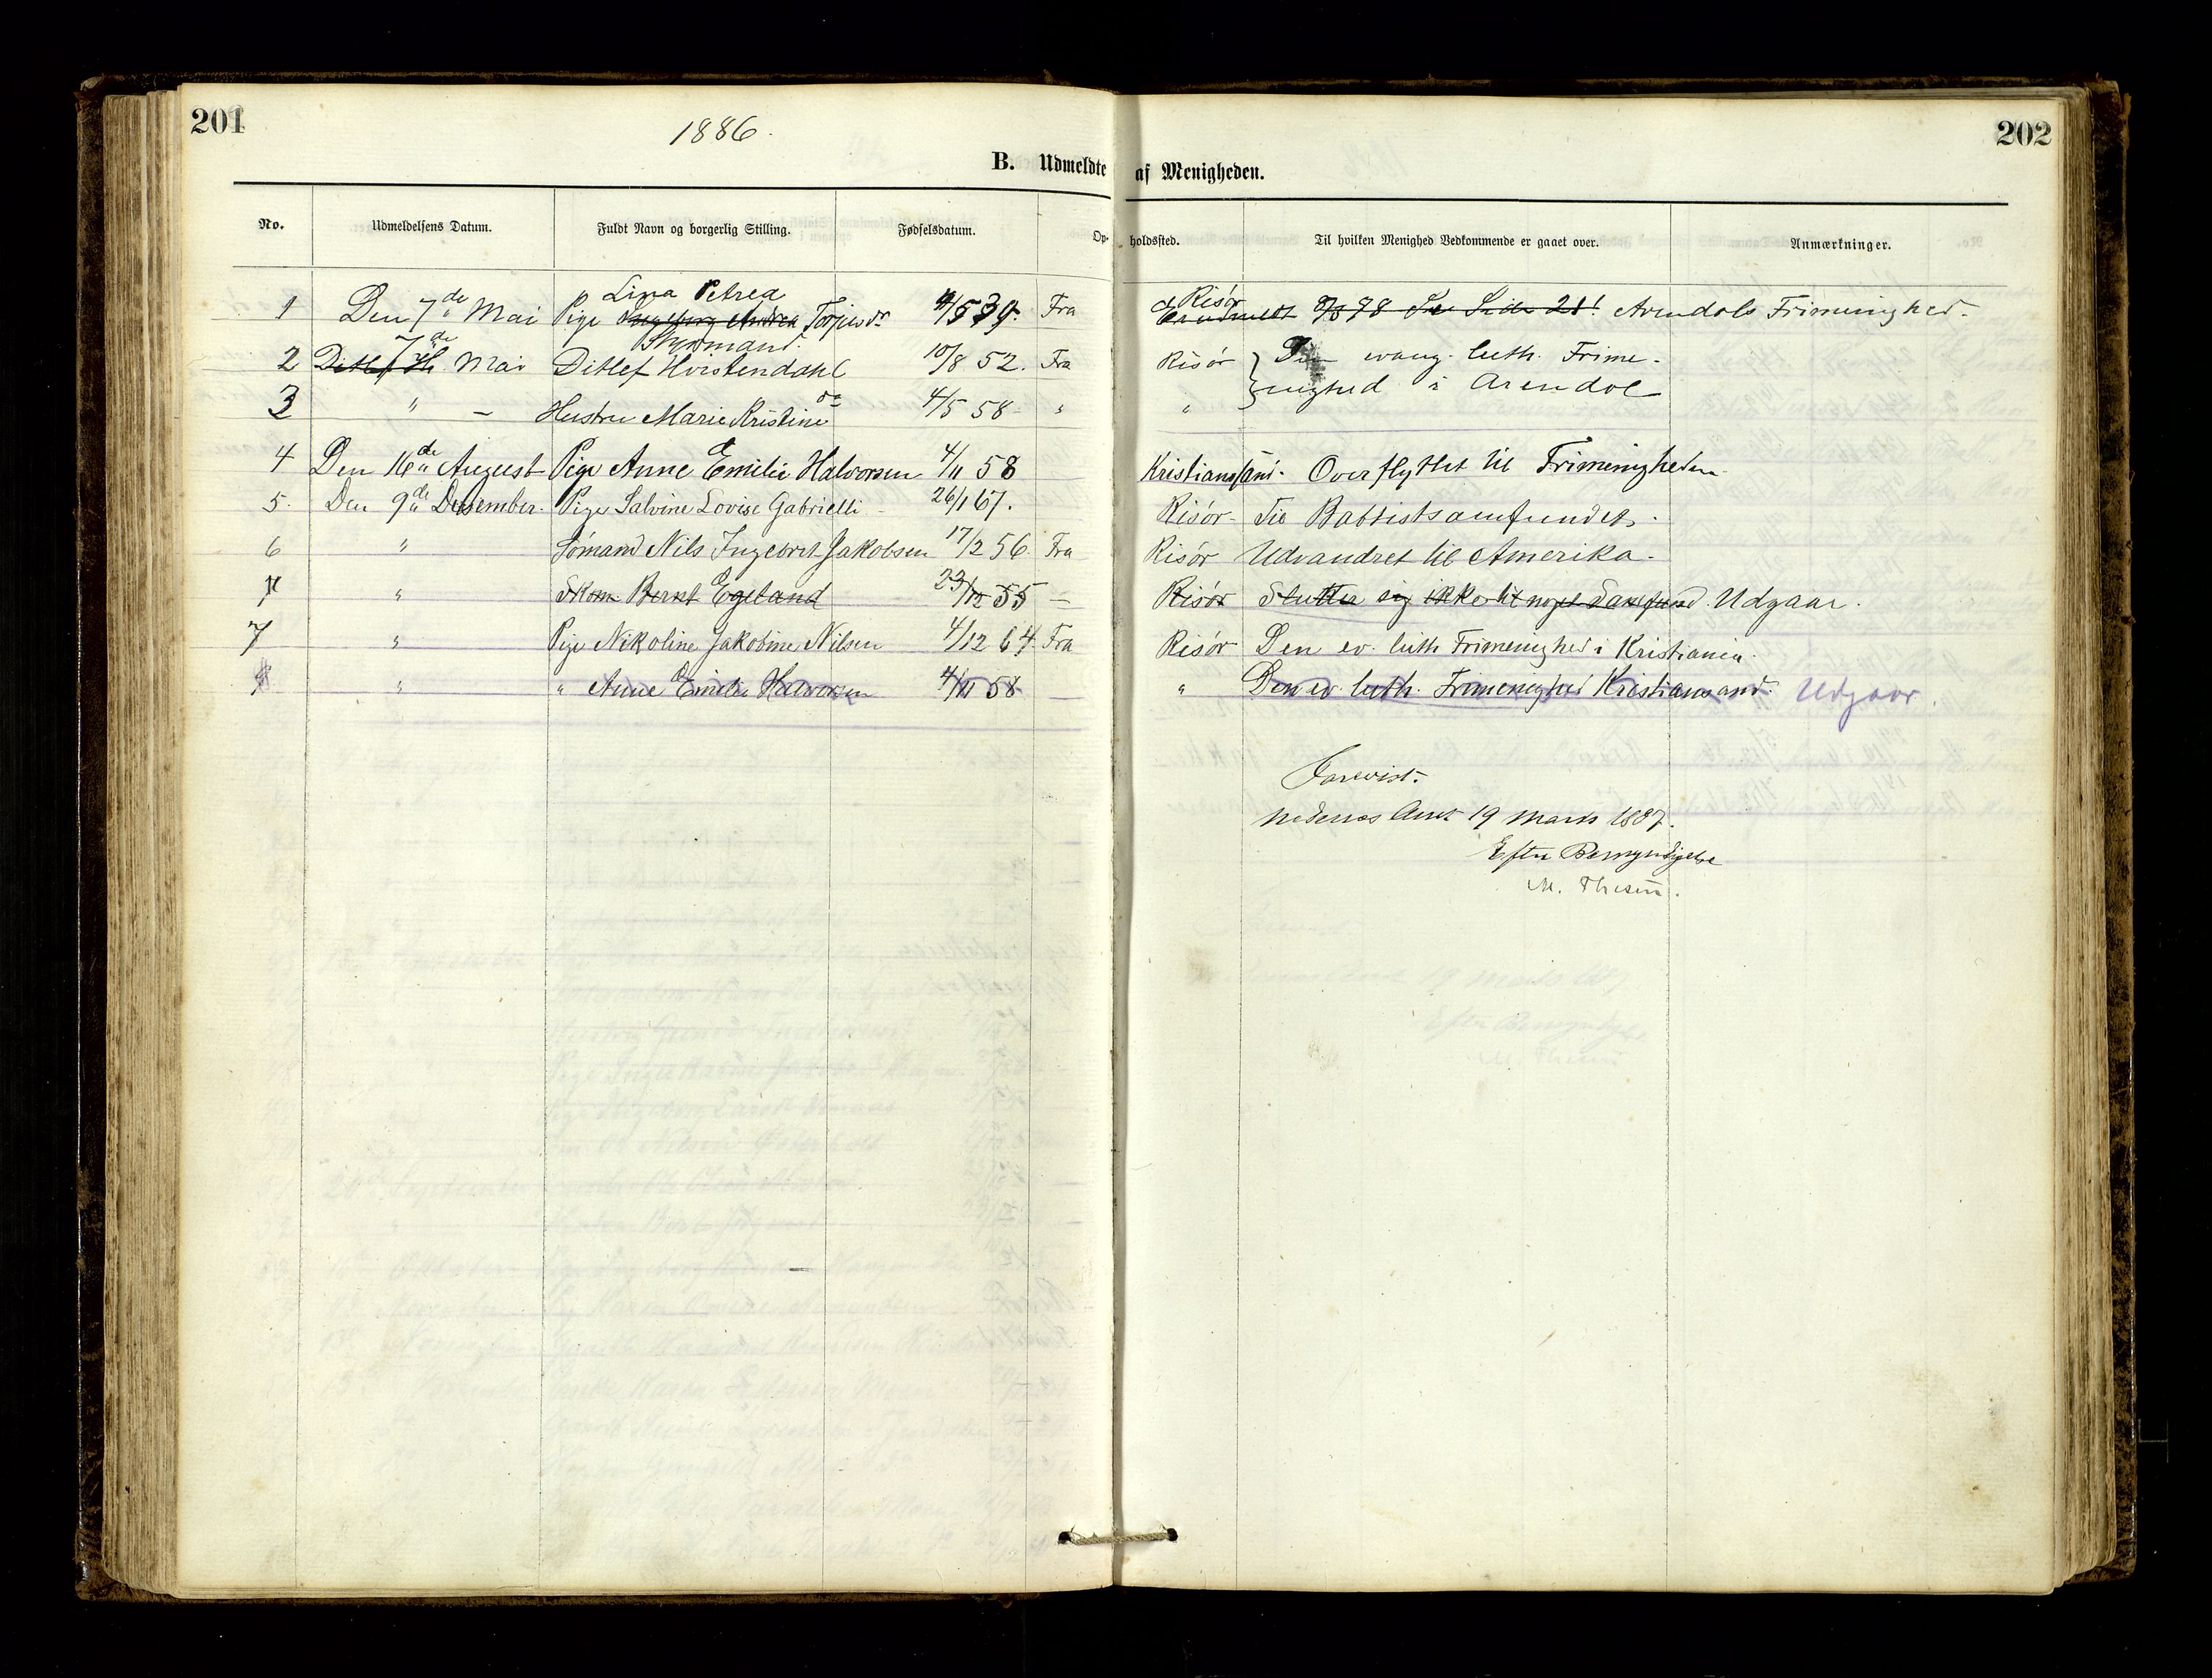 201
1886.
202
B. Udmeldte af Menigheden.
No. Udmeldelsens Datum. Fuldt Navn og borgerlig Stilling. Fødselsdatum. Op- holdssted. Til hvilken Menighed Vedkommende er gaaet over. Anmærkninger.
Lina Petrea Risör
1 Den 7de Mai Pige Ingeborg Andrea Torjesdr 4/5 39. Fra Er udmeldt 8/8 78 Se Side 21! Arendals Frimenighed.
7de Styrmand
2 Ditlef H Mai Ditlef Hvistendahl 10/8 52. Fra Risör Den evang. luth. Frime-
3 " - Hustru Marie Kristine do 4/5 58 " " nighed i Arendal
4 Den 16de August Pige Anne Emilie Halvorsen 4/11 58 Kristianssand. Overflyttet til Frimenigheden.
5. Den 9de Desember. Pige Salvine Lovise Gabrielli - 26/1 67. Risör- Til Babtistsamfundet.
6 " Sömand Nils Ingebret Jakobsen 17/2 56. Fra Risör Udvandret til Amerika.
7 " Skom. Bernt Egeland 23/12 55 - Risör Slutter sig ikke til noget Samfund. Udgaar.
7 " Pige Nikoline Jakobine Nilsen 4/12 64. Fra Risör Den ev. luth Frimenighed i Kristiania.
" " Anne Emilie Halvorsen 4/11 58 - " Den ev. luth. Frimenighed Kristiansand. Udgaar.
Forevist.
Nedenæs Amt 19 Marts 1887.
Efter Bemyndigelse
M. Thesen.